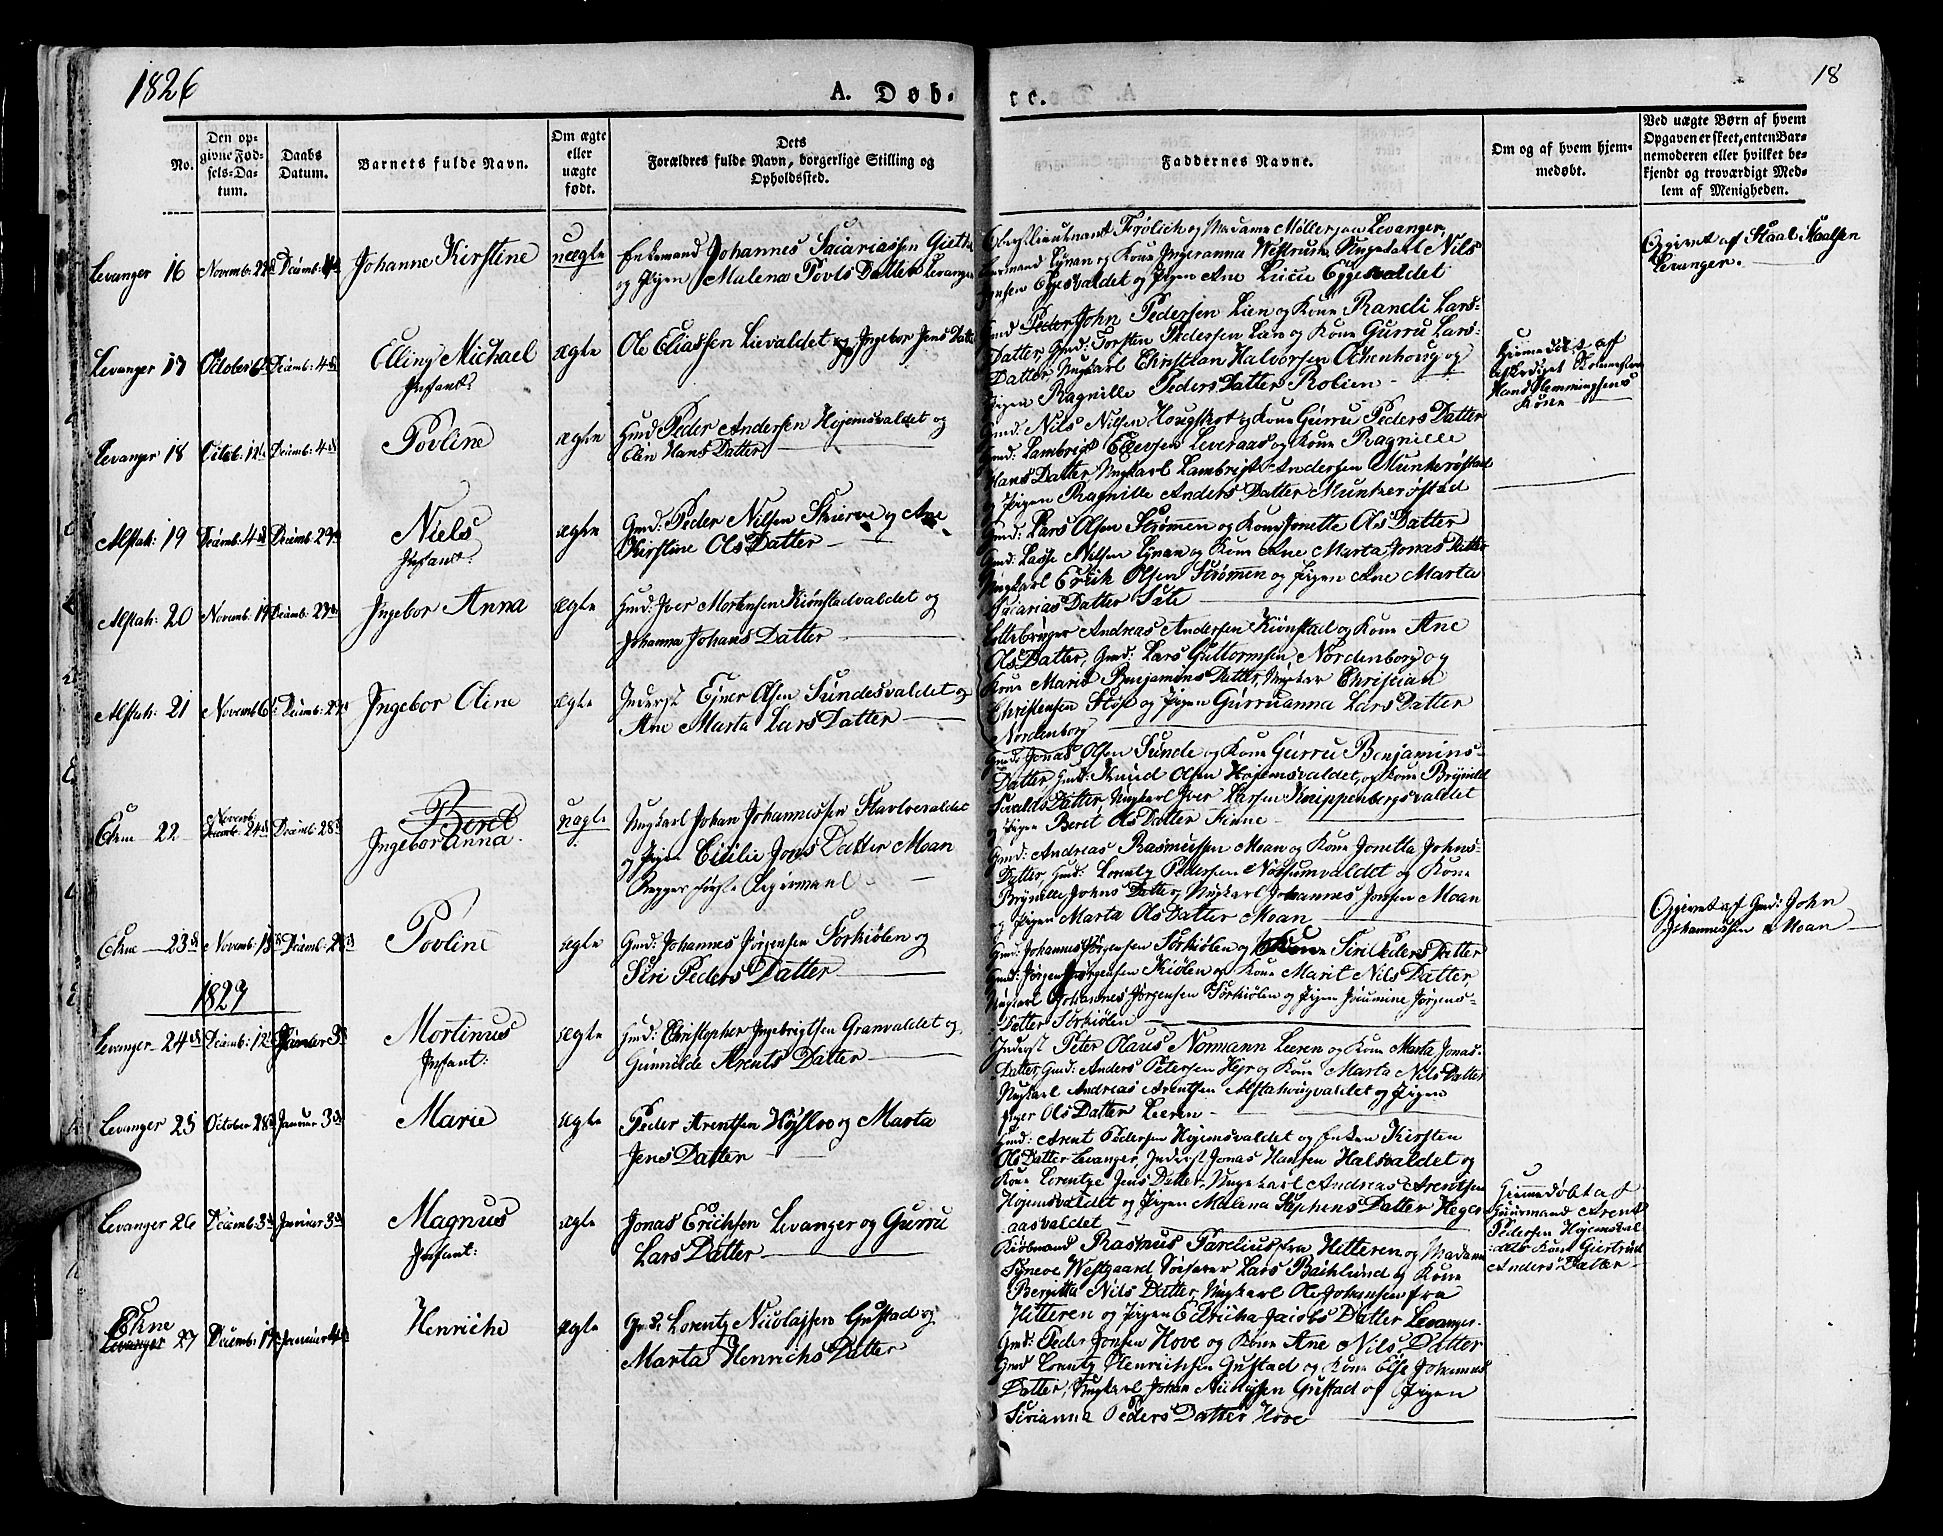 1826
A. Døb-
re.
18
No.
Den op-
givne Fød-
sels-Da-
tum.
Daabs
Datum.
Barnets fulde Navn.
Om ægte
eller
uægte
født.
Dets
Forældres fulde Navn, borgerlige Stilling og
Opholdssted.
Faddernes Navne.
Om og af hvem hjem-
medøbt.
Ved uægte Børn af hvem
Opgaven er skeet, enten Bar-
nemoderen eller hvilket be-
kjendt og troværdigt Med-
lem af Menigheden.
Levanger 16 Novemb: Decemb: Johanne Kirstine
uægte
Enkemand Johannes Sacariassen
og Pigen Malena Povls Datter Levanger
Oberstlieutnant Frølich og Madame Møller paa Levanger,
og Kone Ingeranna Westrum Ungekarl Nils
og Pigen Ane Eggesvaldet
Opgivet af Skaal Skaalsen
Levanger.
Levanger 17 October 6 Decemb: 4de Elling Michael
Infant:
ægte
Ole Eliassen Lievaldet og Ingebor Jens Datter
Gmd: Peder John Pedersen Lien og Kone Randi Lars-
Datter, Gmd: Torsten Pedersen Lien og Kone Gurru Lars-
Datter, Ungkarl Christian Halvorsen og
Pigen Ragnille Peders Datter Rolien
Hiemedøbt af
Hans Flemmingsens
Kone
Levanger 18 Octob: Decemb: 4de Povline
ægte
Gmd: Peder Andersen Højemsvaldet og
Elen Hans Datter
Gmd: Nils Nilsen og Kone Gurru Peders Datter
Gmd: Lambrigt Leveraas og Kone Ragnille
Hans Datter Ungkarl Lambrigt Andersen Munkerøstad
og Pigen Ragnille Anders Datter Munkerøstad
Alstah: 19 Decemb: 4de Decemb: 29 Niels
Infant:
ægte
Gmd: Peder Nilsen Skierve og Ane
Kirstine Ols Datter
Gmd: Lars Olsen Strømmen og Kone Jonette Ols Datter
Gmd: Lasse Nilsen og Kone Ane Marta Jonas Datter
Ungkarl Erik Olsen Strømmen og Pigen Ane Marta
Sacarias Datter
Alstah: 20 Novemb: Decemb: 29 Ingebor Anna
ægte
Gmd: Iver Mortensen Kiønstadvaldet og
Johanna Johans Datter
Andreas Andersen Kiønstad og Kone Ane
Ols Datter, Gmd: Lars Guttormsen Nordenborg og
Kone Marit Benjamins Datter, Christian
Christensen og Pigen Gurruanna Lars Datter
Nordenborg
Alstah: 21 Novemb 6 Decemb: 29 Ingebor Oline
ægte
Inderst Ejner Olsen Sundesvaldet og
Ane Marta Lars Datter
Gmd: Jonas Olsen Sunde og Kone Gurru Benjamins-
Datter, Gmd: Knud Olsen Højemsvaldet og Kone
Datter Ungkarl Iver Larsen Knippenbergsvaldet
og Pigen Beret Ols Datter Finne
Ekne 22 Novemb: 24 Decemb: 28 Beret
Ingebor Anna
uægte
Ungkarl Johan Johannessen
og Pigen Cicilie Jons Datter Moan
Begges første Leiermaal
Gmd: Andreas Rasmussen Moan og Kone Jonetta Johns-
Datter, Gmd: Lorentz Pedersen og Kone
Johns Datter, Ungkarl Johannes Jonsen Moan
og Pigen Marta Ols Datter Moan
Opgivet af Gmd: John
Johannessen Moan
Ekne 23 Novemb: 18 Decemb: Povline
ægte
Gmd: Johannes Jørgensen Sørkiølen og
Siri Peders Datter
Gmd: Johannes Jørgensen Sørkiølen og Kone Siri Peders Datter
Gmd: Jørgen Jørgensen Kiølen og Kone Marit Nils Datter,
Ungkarl Johannes Jørgensen Sørkiølen og Pigen Jørgens-
Datter Sørkiølen
1827
Levanger 24 Decemb: 12 Januar 3 Mortinus
Infant:
ægte
Gmd: Christopher Ingebrigtsen Granvaldet og
Gunnilde Arents Datter
Inderst Peter Olaus Normann Leeren og Kone Marta Jonas-
Datter, Gmd: Anders Petersen og Kone Marta Nils Datter
Ungkarl Andreas Arentsen Alstahougvaldet og Pigen
Ols Datter Leeren
Levanger 25 October 28 Januar 3 Marie
ægte
Peder Arentsen og Marta
Jens Datter
Gmd: Arent Pedersen Højemsvaldet og Enken Kirsten
Ols Datter Levanger, Inderst Jonas Hansen Halsvaldet og
Kone Lorentze Jens Datter, Ungekarl Andreas Arentsen
Højemsvaldet og Pigen Malena Stephens Datter
Levanger 26 Decemb: 3 Januar 3 Magnus
Infant:
ægte
Jonas Erichsen Levanger og Gurru
Lars Datter
Kiøbmand Rasmus fra Hitteren og Madame
Syneve Westgaard Lars Backlund og Kone
Bergitta Nils Datter, Ungkarl Ole Johansen fra
Hitteren og Pigen Edricha Jacobs Datter Levanger.
Hiemmedøbt af
Arent
Pedersen Højemsval-
dets Kone Giertrud
Anders Datter
Ekne
Levanger 27 Decemb: 17 Januar 4 Henriche
ægte
Gmd: Lorentz Nicolajsen Gustad og
Marta Henrichs Datter
Gmd: Peder Jonsen Hove og Kone Ane Nils Datter
Gmd: Lorentz Henrichsen Gustad og Kone Else Johannes
Datter, Ungkarl Johan Gustad og Pigen
Sirianna Peders Datter Hove